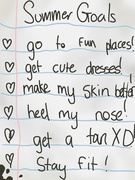 Summer Goals
go to fun places!
get cute dresses!
make my skin better!
heel my nose!
get a tan XD!
Stay fit!